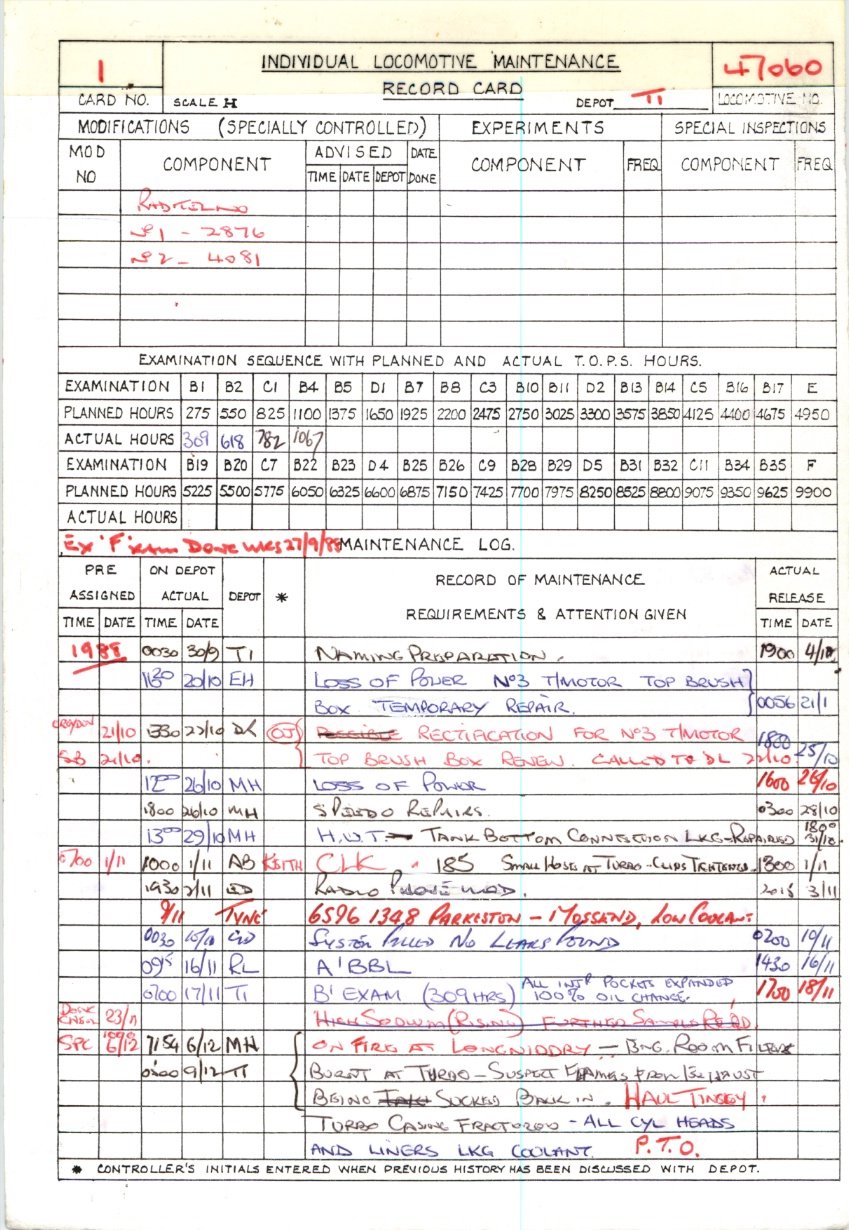 1 INDIVIDUAL LOCOMOTIVE MAINTENANCE 47060
RECORD CARD
CARD NO. SCALE H DEPOT TI LOCOMOTIVE NO.
MODIFICATIONS (SPECIALLY CONTROLLED) EXPERIMENTS SPECIAL INSPECTIONS
MOD NO COMPONENT ADVISED DATE DONE COMPONENT FREQ COMPONENT FREQ
TIME DATE DEPOT
Nº1 - 2876
Nº2 - 4081
EXAMINATION SEQUENCE WITH PLANNED AND ACTUAL T.O.P.S. HOURS.
EXAMINATION B1 B2 C1 B4 B5 D1 B7 B8 C3 B10 B11 D2 B13 B14 C5 B16 B17 E
PLANNED HOURS 275 550 825 1100 1375 1650 1925 2200 2475 2750 3025 3300 3575 3850 4125 4400 4675 4950
ACTUAL HOURS 309 618 782 1067
EXAMINATION B19 B20 C7 B22 B23 D4 B25 B26 C9 B28 B29 D5 B31 B32 C11 B34 B35 F
PLANNED HOURS 5225 5500 5775 6050 6325 6600 6875 7150 7425 7700 7975 8250 8525 8800 9075 9350 9625 9900
ACTUAL HOURS
Ex 'F' EXAM DONE WKS 27/9/88 MAINTENANCE LOG.
PRE ASSIGNED ON DEPOT ACTUAL DEPOT * RECORD OF MAINTENANCE ACTUAL RELEASE
REQUIREMENTS & ATTENTION GIVEN
TIME DATE TIME DATE TIME DATE
1988 0030 30/9 TI NAMING PREPARATION. 1900 4/10
1630 20/10 EH LOSS OF POWER Nº3 T/MOTOR TOP BRUSH
BOX TEMPORARY REPAIR. 0056 21/1
CROYDON 21/10 1330 22/10 DL OJ POSSIBLE RECTIFICATION FOR Nº3 T/MOTOR 1800
SB 21/10. TOP BRUSH BOX RENEW. CALLED TO DL 22/10 25/10
12⁰⁰ 26/10 MH LOSS OF POWER 1600 26/10
1800 26/10 MH SPEEDO REPAIRS. 0300 28/10
13⁰⁰ 29/10 MH H.W.T. TANK BOTTOM CONNECTION LKG - REPAIRED 1800 31/10
0700 1/11 1000 1/11 AB KEITH CLK. 185 SMALL HOSE AT TURBO - CLIPS TIGHTENED. 1300 1/11
1930 2/11 RADIO PHONE MOD. 3/11
9/11 TYNE 6S96 1348 PARKESTON - MOSSEND, LOW COOLANT
0030 10/11 SYSTEM FILLED NO LEAKS FOUND 0200 10/11
16/11 RL 'A' BBL 1430 16/11
0700 17/11 TI 'B' EXAM (309 HRS) ALL INTR POCKETS EXPANDED 100% OIL CHANGE. 1750 18/11
23/11 HIGH SODIUM (RISING) FURTHER SAMPLE REQD
SPC 6/12 7154 6/12 MH ON FIRE AT LONGNIDDRY - ENG. ROOM FILTERS
9/12 TI BURNT AT TURBO - SUSPECT FLAMES FROM EXHAUST
BEING SUCKED BACK IN. HAUL TINSLEY.
TURBO CASING FRACTURED - ALL CYL HEADS
AND LINERS LKG COOLANT. P.T.O.
* CONTROLLER'S INITIALS ENTERED WHEN PREVIOUS HISTORY HAS BEEN DISCUSSED WITH DEPOT.